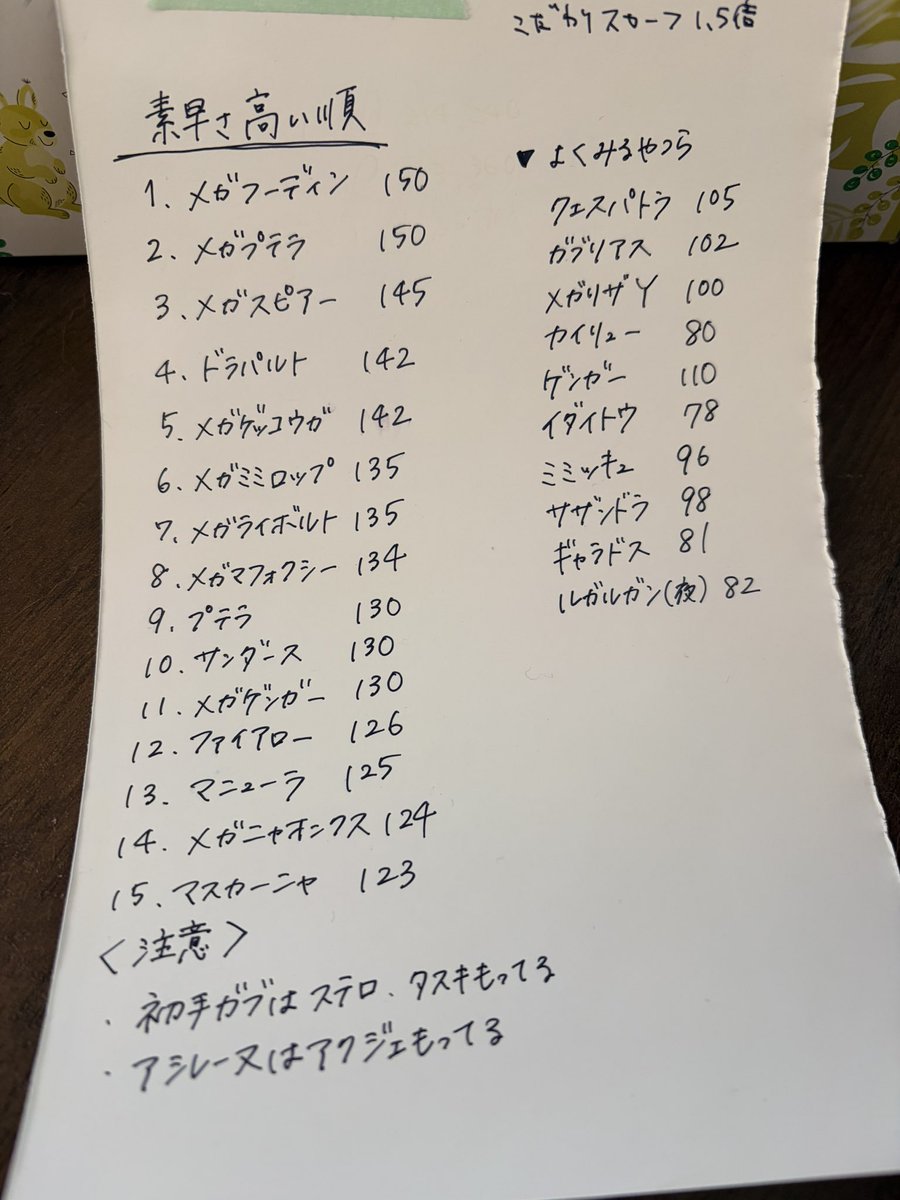 こだわりスカーフ 1.5倍
素早さ高い順
1. メガフーディン 150
2. メガプテラ 150
3. メガスピアー 145
4. ドラパルト 142
5. メガゲッコウガ 142
6. メガミミロップ 135
7. メガライボルト 135
8. メガマフォクシー 134
9. プテラ 130
10. サンダース 130
11. メガゲンガー 130
12. ファイアロー 126
13. マニューラ 125
14. メガニャオニクス 124
15. マスカーニャ 123
<注意>
・初手ガブはステロ、タスキもってる
・アシレーヌはアクジェもってる
▼よくみるやつら
クエスパトラ 105
ガブリアス 102
メガリザY 100
カイリュー 80
ゲンガー 110
イダイトウ 78
ミミッキュ 96
サザンドラ 98
ギャラドス 81
ルガルガン(夜) 82